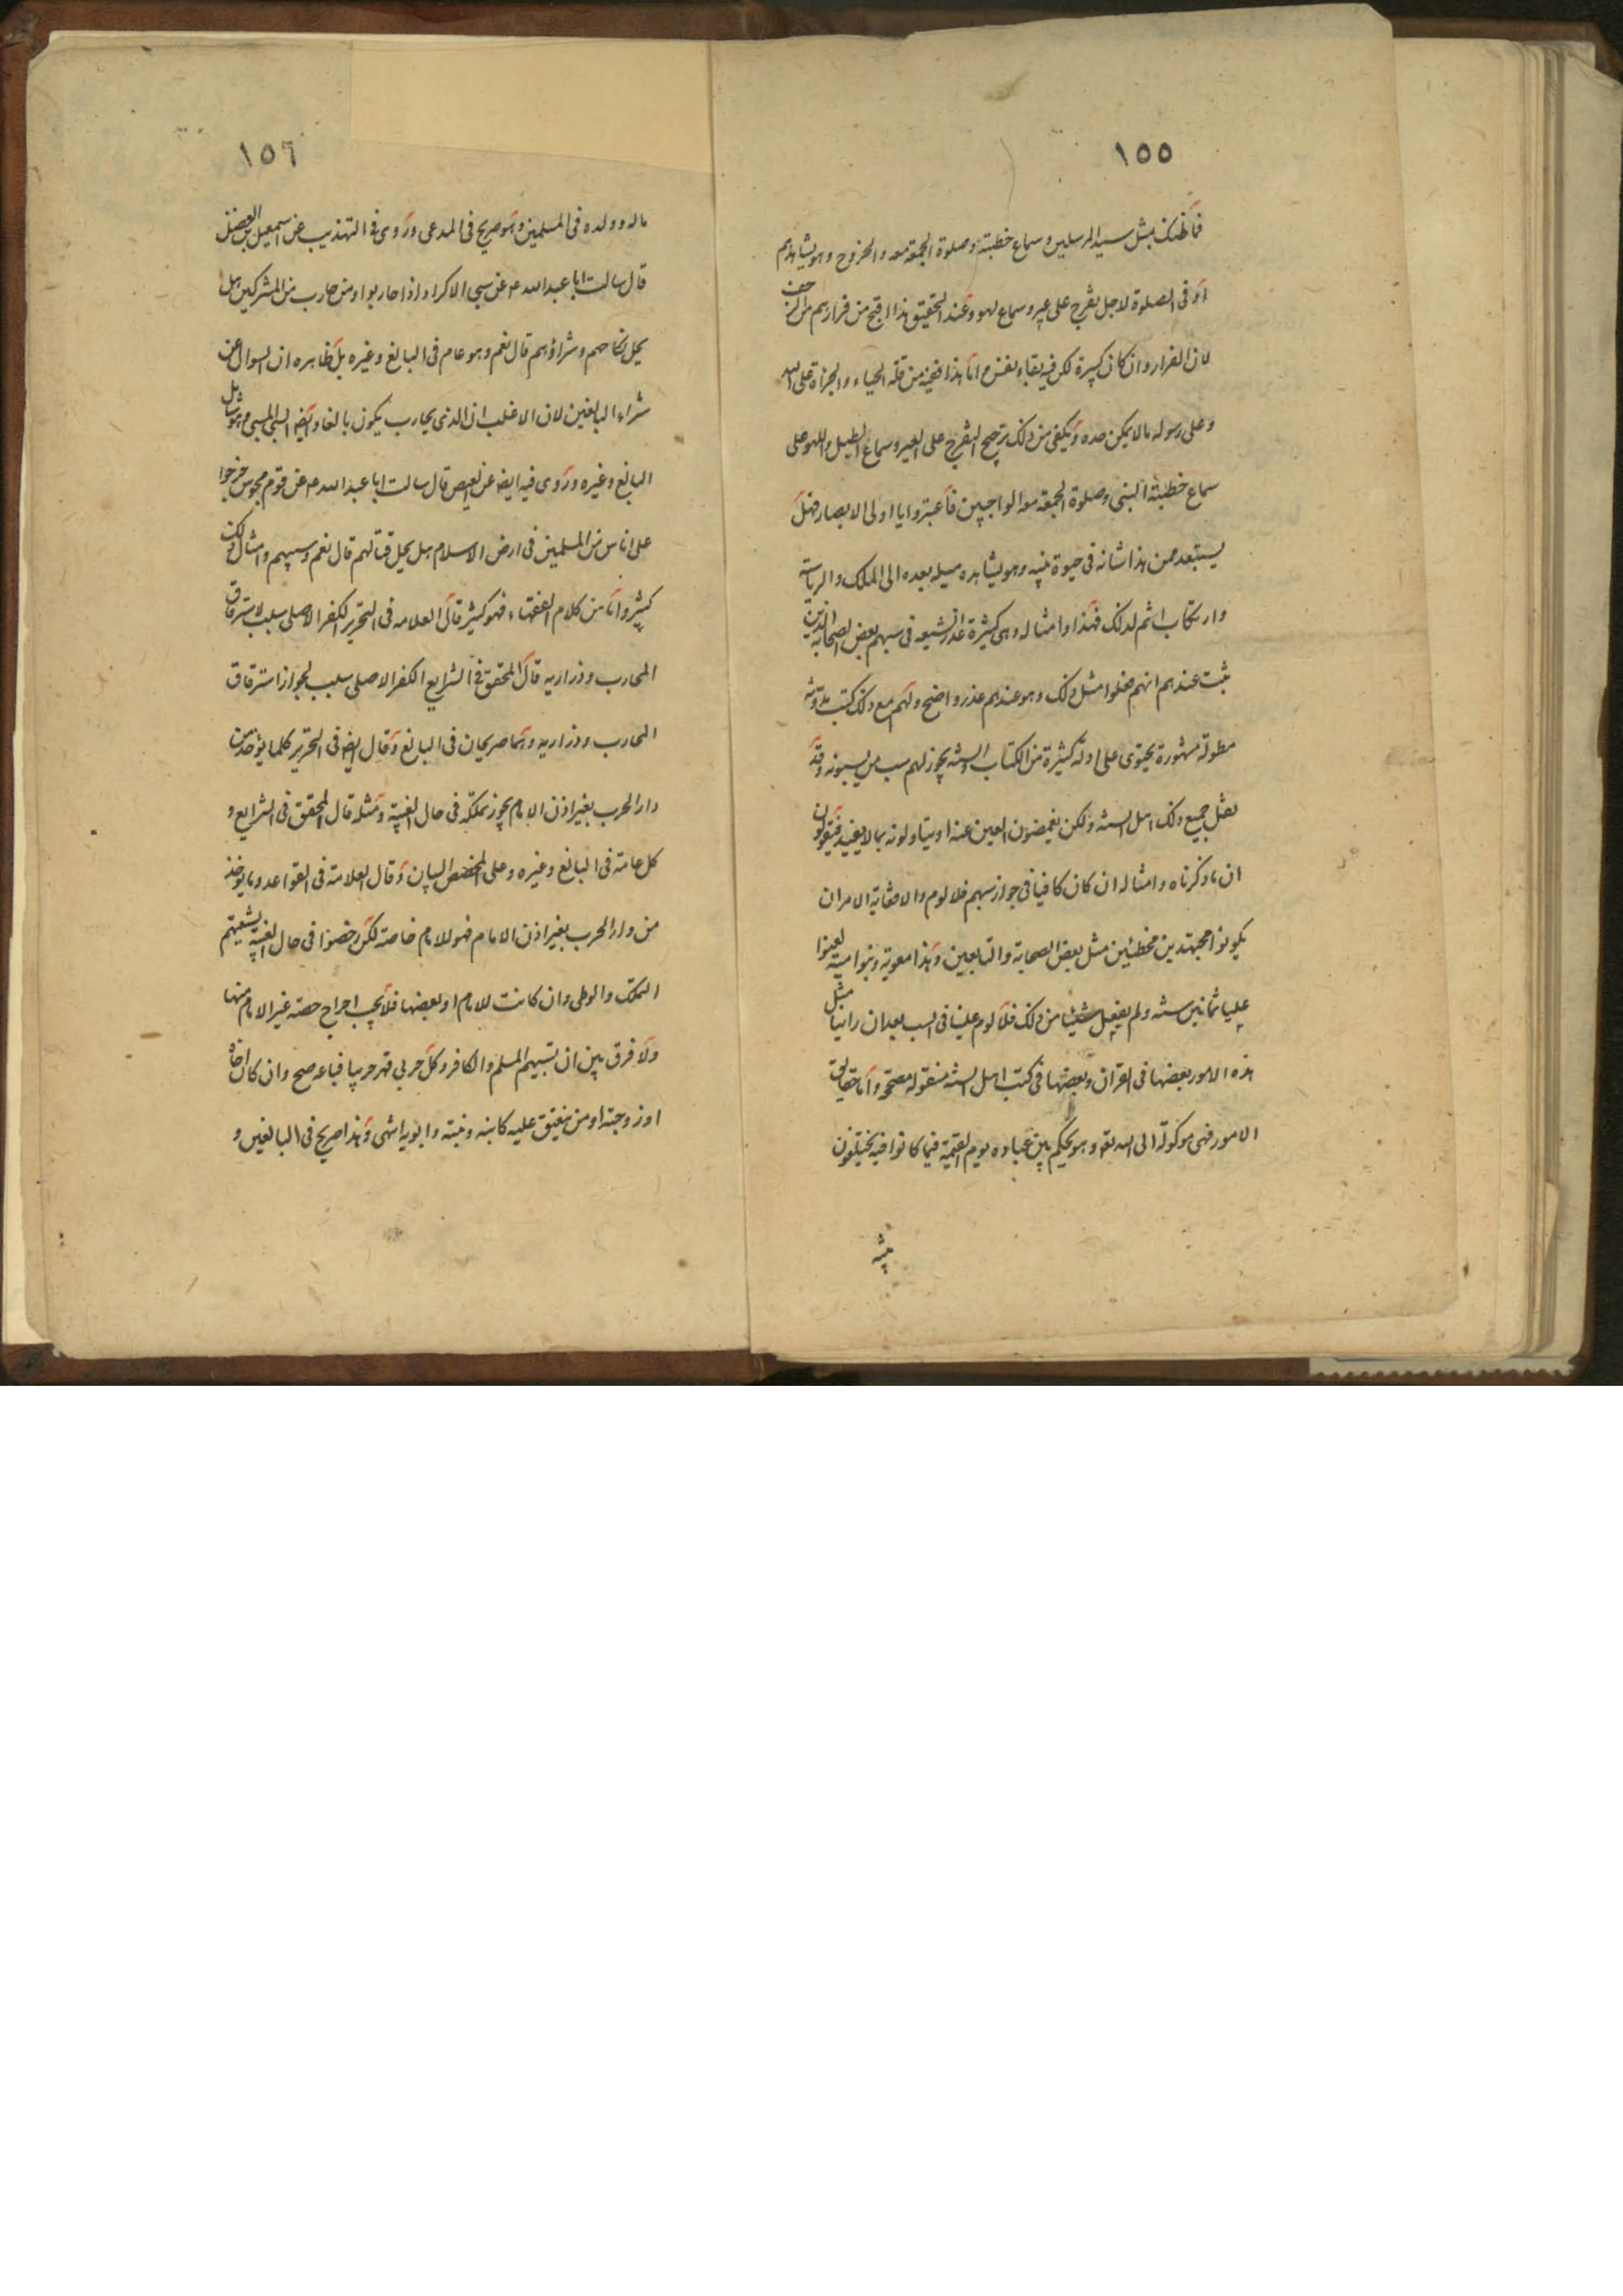 ١٥٥
فما ظنك بمثل سيد المرسلين وسماع خطبته وصلوة الجمعة معه والخروج وهو يشاهدهم
او فى الصلوة لاجل تفرج على عير وسماع لهو وعند التحقيق هذا اقبح من فرارهم من الزحف
لان الفرار وان كان كبيرة لكن فيه بقاء نفس واما هذا ففيه من قلة الحياء والجرأة على الله
وعلى رسوله ما لا يمكن حده ويكفى من ذلك ترجيح التفرج على العير وسماع الطبل واللهو على
سماع خطبة النبى وصلوة الجمعة معه الواجبين فاعتبروا يا اولى الابصار فهل
يستبعد ممن هذا شانه فى حيوة نبيه وهو يشاهده ميله بعده الى الملك والرياسة
وارتكاب اثم لذلك فهذا وامثاله وهى كثيرة عذر الشيعه فى سبهم بعض الصحابة الذين
ثبت عندهم انهم فعلوا مثل ذلك وهو عندهم عذر واضح ولهم مع ذلك كتب مدونة
مطولة مشهورة يحتوى على ادلة كثيرة من الكتاب والسنة يجوز لهم سب من يسبونه وقد
نقل جميع ذلك اهل السنة ولكن يغمضون العين عنه او يتاولونه بما لا يفيد فيقولون
ان ما ذكرناه وامثاله ان كان كافيا فى جواز سبهم فلا لوم والا فغاية الامر ان
يكونوا مجتهدين مخطئين مثل بعض الصحابة والتابعين وهذا معوية وبنوا مية لعنوا
عليا ثمانين سنة ولم يفعل شيئا من ذلك فلا لوم علينا فى السب بعد ان راينا مثل
هذه الامور بعضها فى القران وبعضها فى كتب اهل السنة منقولة مصححة واما حقايق
الامور فهى موكولة الى الله تعه وهو يحكم بين عباده يوم القيمة فيما كانوا فيه يختلفون
١٥٦
ماله وولده فى المسلمين وهو صريح فى المدعى وروى فى التهذيب عن اسمعيل بن الفضل
قال سالت ابا عبد الله ع عن سبى الاكراد اذا حاربوا ومن حارب من المشركين هل
يحل نكاحهم وشراؤهم قال نعم وهو عام فى البالغ وغيره بل ظاهره ان السوال عن
شراء البالغين لان الاغلب ان الذى يحارب يكون بالغا وايضا السبى المسبى وهو شامل
البالغ وغيره وروى فيه ايضا عن العيص قال سالت ابا عبد الله ع عن قوم مجوس خرجوا
على اناس من المسلمين فى ارض الاسلام هل يحل قتالهم قال نعم وسبيهم وامثال ذلك
كثير واما من كلام الفقهاء فهو كثير قال العلامه فى التحرير الكفر الاصلى سبب لاسترقاق
المحارب وذراريه قال المحقق فى الشرايع الكفر الاصلى سبب لجواز استرقاق
المحارب وذراريه وهما صريحان فى البالغ وقال ايضا فى التحرير كلما يؤخذ من
دار الحرب بغير اذن الامام يجوز تملكه فى حال الغيبة ومثله قال المحقق فى الشرايع و
كل عامة فى البالغ وغيره وعلى المخصص البيان وقال العلامة فى القواعد وما يوخذ
من دار الحرب بغير اذن الامام فهو للامام خاصة لكن رخصوا فى حال الغيبة لشيعتهم
التملك والوطى وان كانت للامام او بعضها فلا يجب اخراج حصة غير الامام منها
ولا فرق بين ان يسبيهم المسلم والكافر وكل حربى قهر حربيا فباعه صح وان كان اخاه
او زوجته او من ينعتق عليه كابنه وبنته وابويه انتهى وهذا صريح فى البالغين و